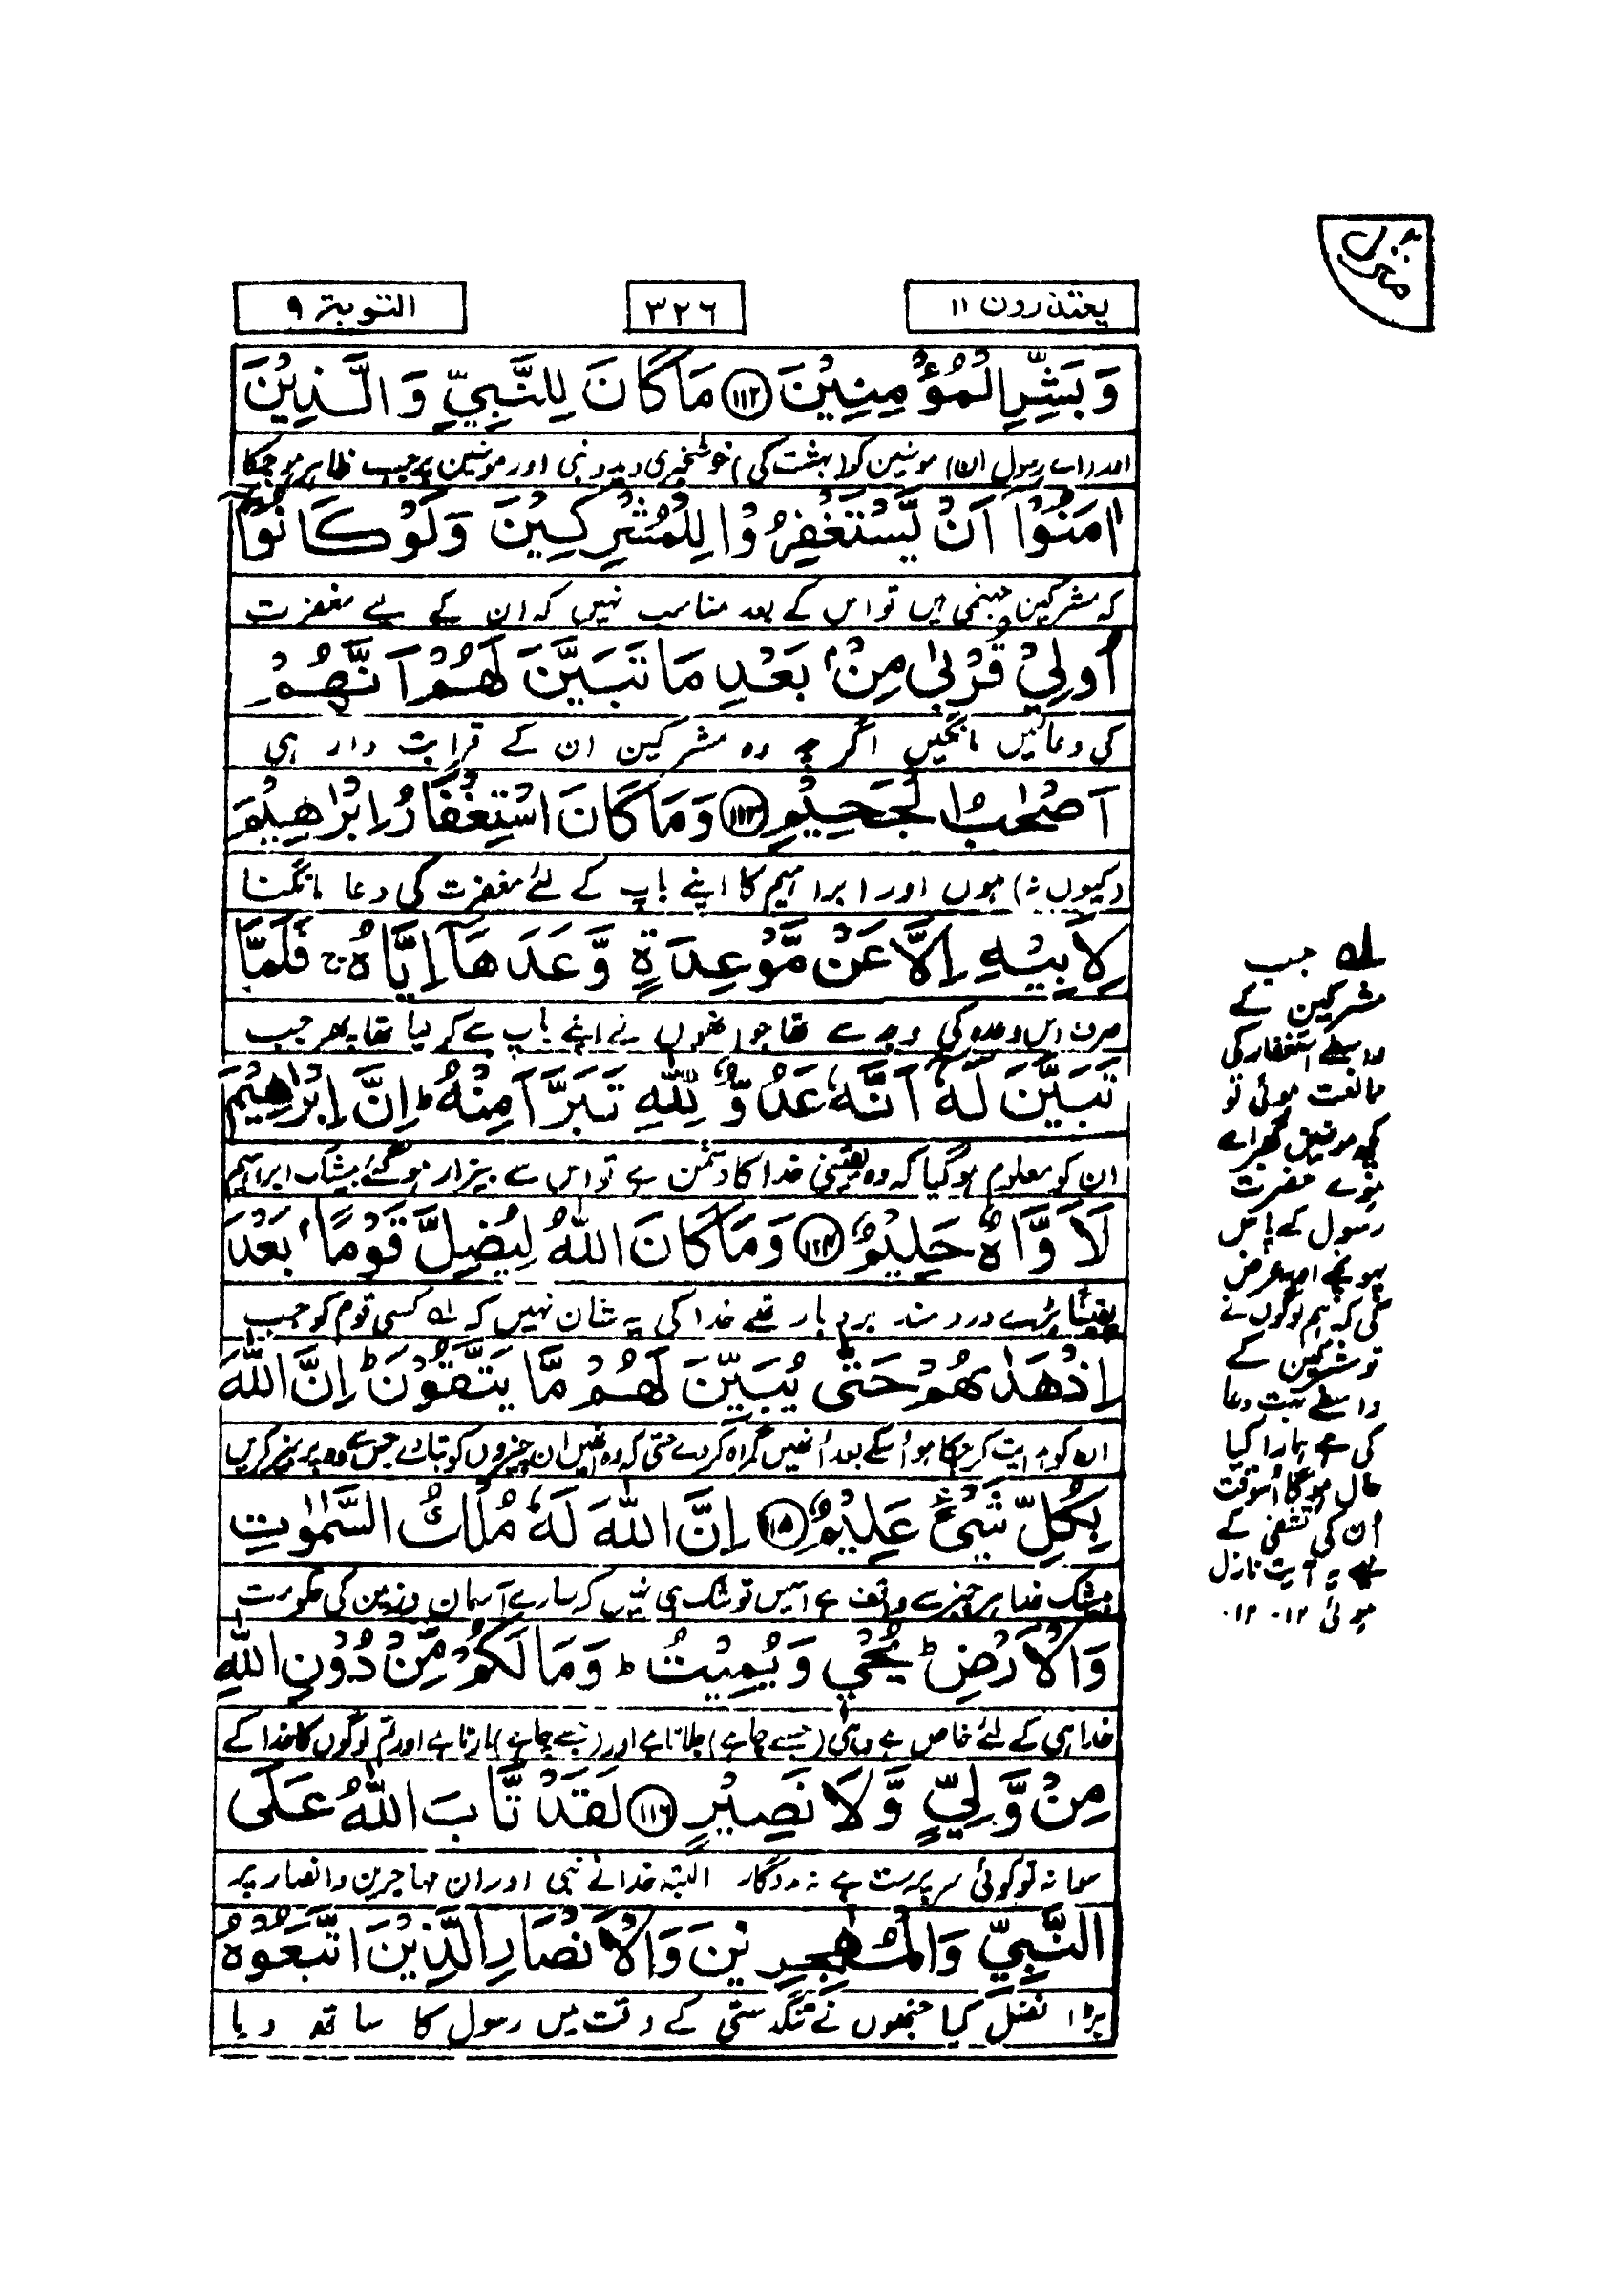 منزل
یعتذرون ۱۱
۳۲۶
التوبۃ ۹
وَبَشِّرِ الْمُؤْمِنِيْنَ ۝۱۱۲ مَا كَانَ لِلنَّبِيِّ وَالَّذِيْنَ
اور (اے رسول ان) مومنین کو (بہشت کی) خوشخبری دیدو نبی اور مومنین پر جب ظاہر ہو چکا
اٰمَنُوْٓا اَنْ يَّسْتَغْفِرُوْا لِلْمُشْرِكِيْنَ وَلَوْ كَانُوْٓا
کہ مشرکین جہنمی ہیں تو اس کے بعد مناسب نہیں کہ ان کے لیے مغفرت
اُولِيْ قُرْبٰى مِنْۢ بَعْدِ مَا تَبَيَّنَ لَهُمْ اَنَّهُمْ
کی دعائیں مانگیں اگرچہ وہ مشرکین ان کے قرابت دار ہی
اَصْحٰبُ الْجَحِيْمِ ۝۱۱۳ وَمَا كَانَ اسْتِغْفَارُ اِبْرٰهِيْمَ
(کیوں نہ) ہوں اور ابراہیم کا اپنے باپ کے لئے مغفرت کی دعا مانگنا
لِاَبِيْهِ اِلَّا عَنْ مَّوْعِدَةٍ وَّعَدَهَآ اِيَّاهُ ۚ فَلَمَّا
صرف اس وعدہ کی وجہ سے تھا جو انھوں نے اپنے باپ سے کر لیا تھا پھر جب
تَبَيَّنَ لَهٗٓ اَنَّهٗ عَدُوٌّ لِّلّٰهِ تَبَرَّاَ مِنْهُ ؕ اِنَّ اِبْرٰهِيْمَ
ان کو معلوم ہو گیا کہ وہ یقینی خدا کا دشمن ہے تو اس سے بیزار ہو گئے بیشک ابراہیم
لَاَوَّاهٌ حَلِيْمٌ ۝۱۱۴ وَمَا كَانَ اللّٰهُ لِيُضِلَّ قَوْمًاۢ بَعْدَ
یقیناً بڑے دردمند بردبار تھے خدا کی یہ شان نہیں کہ ۱ے کسی قوم کو جب
اِذْ هَدٰىهُمْ حَتّٰى يُبَيِّنَ لَهُمْ مَّا يَتَّقُوْنَ ؕ اِنَّ اللّٰهَ
ان کو ہدایت کر چکا ہو اُسکے بعد اُنھیں گمراہ کر دے حتی کہ وہ انھیں ان چیزوں کو بتا دے جس سے وہ پرہیز کریں
بِكُلِّ شَيْءٍ عَلِيْمٌ ۝۱۱۵ اِنَّ اللّٰهَ لَهٗ مُلْكُ السَّمٰوٰتِ
بیشک خدا ہر چیز سے واقف ہے اسمیں تو شک ہی نہیں کہ سارے آسمان و زمین کی حکومت
وَالْاَرْضِ ؕ يُحْيٖ وَيُمِيْتُ ؕ وَمَا لَكُمْ مِّنْ دُوْنِ اللّٰهِ
خدا ہی کے لئے خاص ہے وہی (جسے چاہے) جلاتا ہے اور (جسے چاہے) مارتا ہے اور تم لوگوں کا خدا کے
مِنْ وَّلِيٍّ وَّلَا نَصِيْرٍ ۝۱۱۶ لَقَدْ تَّابَ اللّٰهُ عَلَى
سوا نہ تو کوئی سرپرست ہے نہ مددگار البتہ خدا نے نبی اور ان مہاجرین و انصار پر
النَّبِيِّ وَالْمُهٰجِرِيْنَ وَالْاَنْصَارِ الَّذِيْنَ اتَّبَعُوْهُ
بڑا فضل کیا جنھوں نے تنگدستی کے وقت میں رسول کا ساتھ دیا
۱ے جب
مشرکین کے
واسطے استغفار کی
ممانعت ہوئی تو
کچھ مومنین گھبرائے
ہوئے حضرت
رسول کے پاس
پہونچے اور عرض
کی کہ ہم لوگوں نے
تو مشرکین کے
واسطے بہت دعا
کی ہے ہمارا کیا
حال ہوگا اسوقت
اُن کی تشفی کے
لیے یہ آیت نازل
ہوئی ۱۲۔۱۲۰